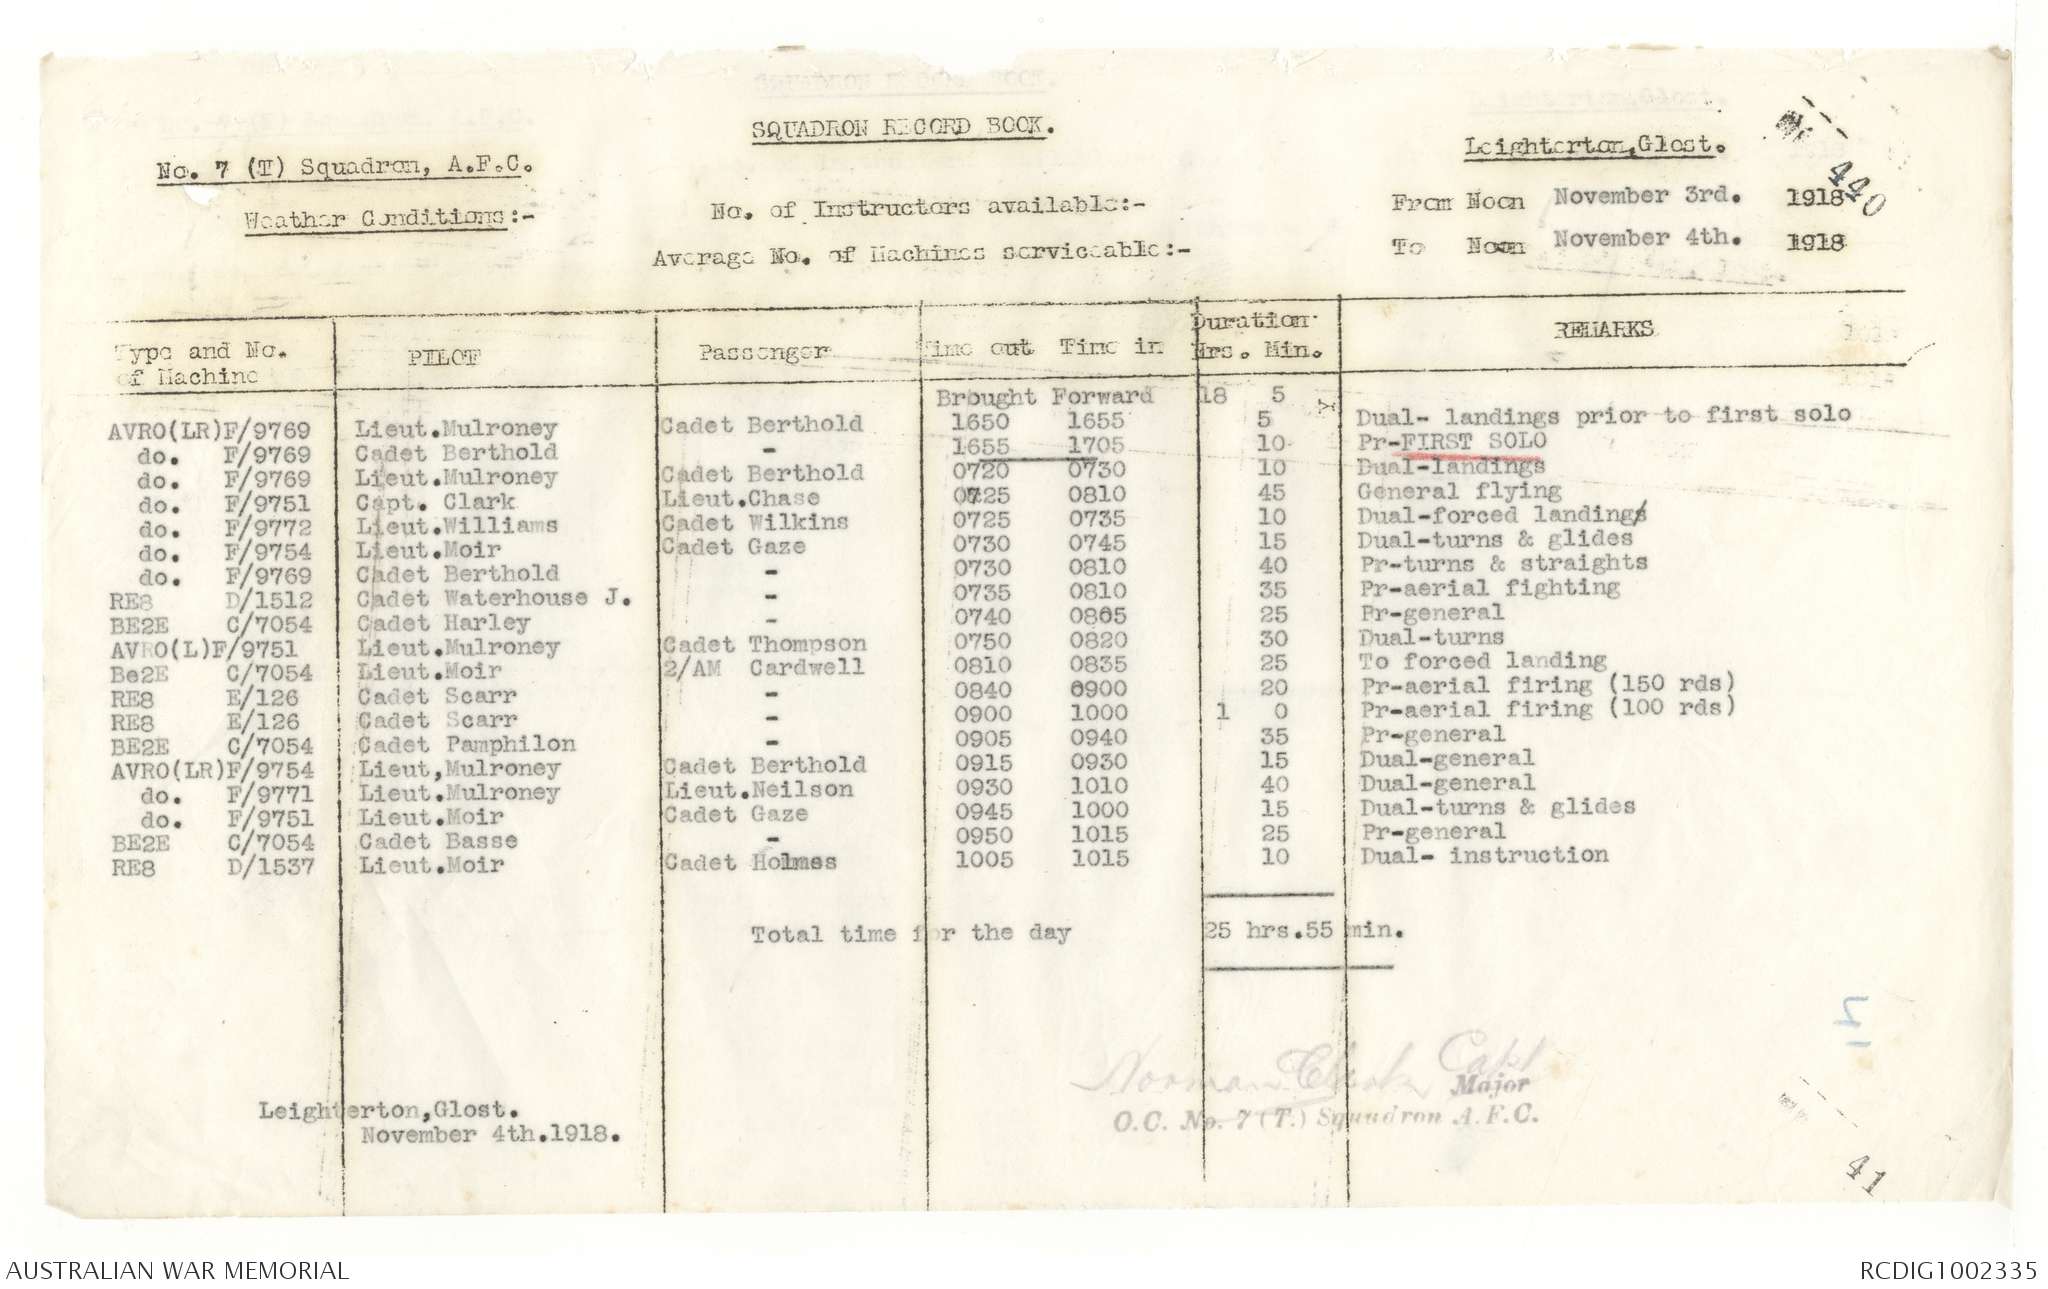 SQUADRON RECORD BOOK.
No. 7 (T) Squadron, A.F.C.
Leighterton,Glost.
440
Weather Conditions:-
No. of Instructors available:-
From Noon November 3rd. 1918
Average No. of Machines serviceable:-
To Noon November 4th. 1918
Type and No. of Machine PILOT Passenger Time out Time in Duration Hrs. Min. REMARKS
Brought Forward 18 5
AVRO(LR)F/9769 Lieut.Mulroney Cadet Berthold 1650 1655 5 Dual- landings prior to first solo
do. F/9769 Cadet Berthold - 1655 1705 10 Pr-FIRST SOLO
do. F/9769 Lieut.Mulroney Cadet Berthold 0720 0730 10 Dual-landings
do. F/9751 Capt. Clark Lieut.Chase 0725 0810 45 General flying
do. F/9772 Lieut.Williams Cadet Wilkins 0725 0735 10 Dual-forced landings
do. F/9754 Lieut.Moir Cadet Gaze 0730 0745 15 Dual-turns & glides
do. F/9769 Cadet Berthold - 0730 0810 40 Pr-turns & straights
RE8 D/1512 Cadet Waterhouse J. - 0735 0810 35 Pr-aerial fighting
BE2E C/7054 Cadet Harley - 0740 0805 25 Pr-general
AVRO(L)F/9751 Lieut.Mulroney Cadet Thompson 0750 0820 30 Dual-turns
Be2E C/7054 Lieut.Moir 2/AM Cardwell 0810 0835 25 To forced landing
RE8 E/126 Cadet Scarr - 0840 0900 20 Pr-aerial firing (150 rds)
RE8 E/126 Cadet Scarr - 0900 1000 1 0 Pr-aerial firing (100 rds)
BE2E C/7054 Cadet Pamphilon - 0905 0940 35 Pr-general
AVRO(LR)F/9754 Lieut,Mulroney Cadet Berthold 0915 0930 15 Dual-general
do. F/9771 Lieut.Mulroney Lieut.Neilson 0930 1010 40 Dual-general
do. F/9751 Lieut.Moir Cadet Gaze 0945 1000 15 Dual-turns & glides
BE2E C/7054 Cadet Basse - 0950 1015 25 Pr-general
RE8 D/1537 Lieut.Moir Cadet Holmes 1005 1015 10 Dual- instruction
Total time for the day 25 hrs.55 min.
Norman Clark Capt
Major
O.C. No. 7 (T.) Squadron A.F.C.
Leighterton,Glost.
November 4th.1918.
41
AUSTRALIAN WAR MEMORIAL
RCDIG1002335